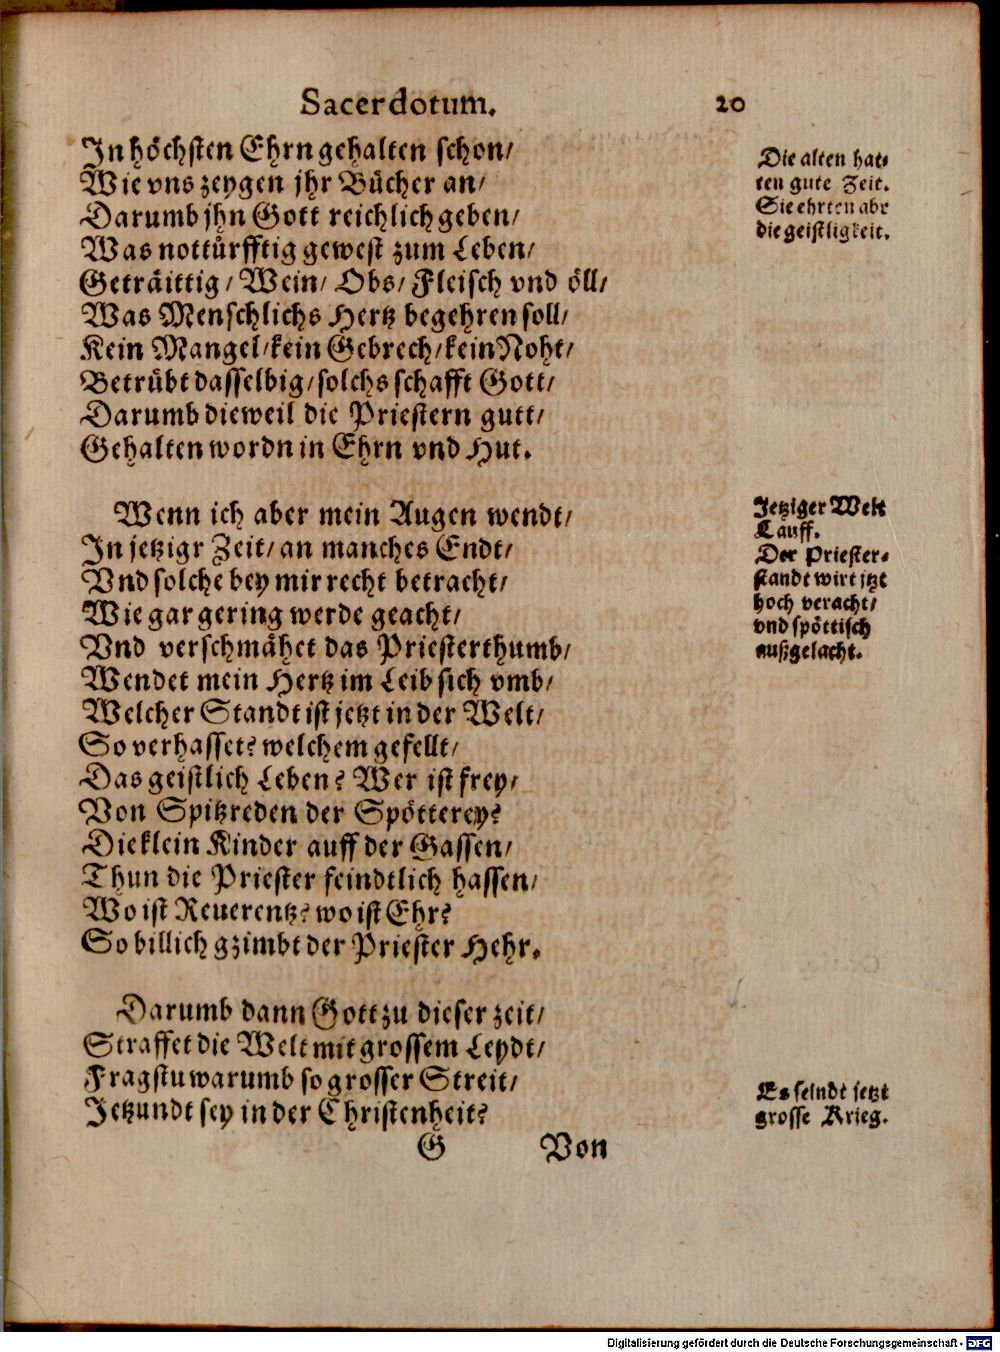 Sacerdotum. 20
In höchsten Ehrn gehalten schon/
Wie vns zeygen jhr Bücher an/
Darumb jhn Gott reichlich geben/
Was nottürfftig gewest zum Leben/
Geträittig/ Wein/ Obs/ Fleisch vnd öll/
Was Menschlichs Hertz begehren soll/
Kein Mangel/ kein Gebrech/ kein Noht/
Betrübt dasselbig/ solchs schafft Gott/
Darumb dieweil die Priestern gutt/
Gehalten wordn in Ehrn vnd Hut.
Die alten hat-
ten gute Zeit.
Sie ehrten abr
die geistligkeit.
Wenn ich aber mein Augen wendt/
In jetzigr Zeit/ an manches Endt/
Vnd solche bey mir recht betracht/
Wie gar gering werde geacht/
Vnd verschmähet das Priesterthumb/
Wendet mein Hertz im Leib sich vmb/
Welcher Standt ist jetzt in der Welt/
So verhasset? welchem gefellt/
Das geistlich Leben? Wer ist frey/
Von Spitzreden der Spötterey?
Die klein Kinder auff der Gassen/
Thun die Priester feindtlich hassen/
Wo ist Reuerentz? wo ist Ehr?
So billich gzimbt der Priester Hehr.
Jetziger Welt
Läuff.
Der Priester-
standt wirt jtzt
hoch veracht/
vnd spöttisch
außgelacht.
Darumb dann Gott zu dieser zeit/
Straffet die Welt mit grossem Leydt/
Fragstu warumb so grosser Streit/
Jetzundt sey in der Christenheit?
Es seindt jetzt
grosse Krieg.
G Von
Digitalisierung gefördert durch die Deutsche Forschungsgemeinschaft - DFG